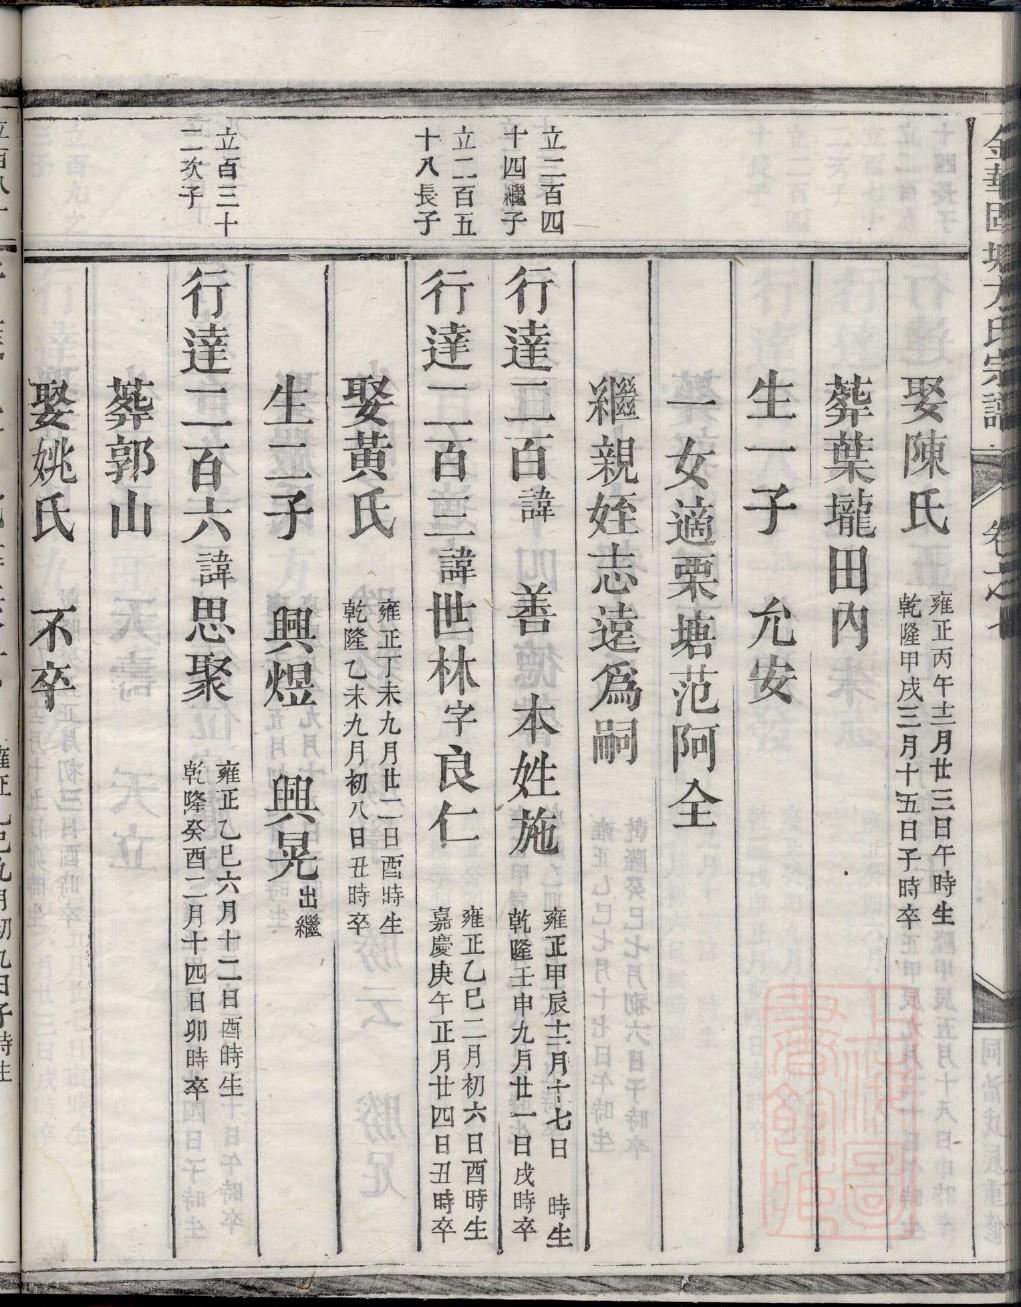 金華國塘方氏宗譜
卷之七
同治戊辰重修
娶陳氏 雍正丙午十二月廿三日午時生
乾隆甲戌三月十五日子時卒
葬葉壠田內
生一子 允安
一女適栗塘范阿全
繼親姪志遠爲嗣
立二百四
十四繼子
行達二百諱 善 本姓施 雍正甲辰十二月十七日 時生
乾隆壬申九月廿一日戌時卒
立二百五
十八長子
行達二百三諱世林字良仁 雍正乙巳二月初六日酉時生
嘉慶庚午正月廿四日丑時卒
娶黃氏 雍正丁未九月廿二日酉時生
乾隆乙未九月初八日丑時卒
生二子 興煜 興晃出繼
立百三十
二次子
行達二百六諱思聚 雍正乙巳六月十二日酉時生
乾隆癸酉二月十四日卯時卒
葬郭山
娶姚氏 不卒